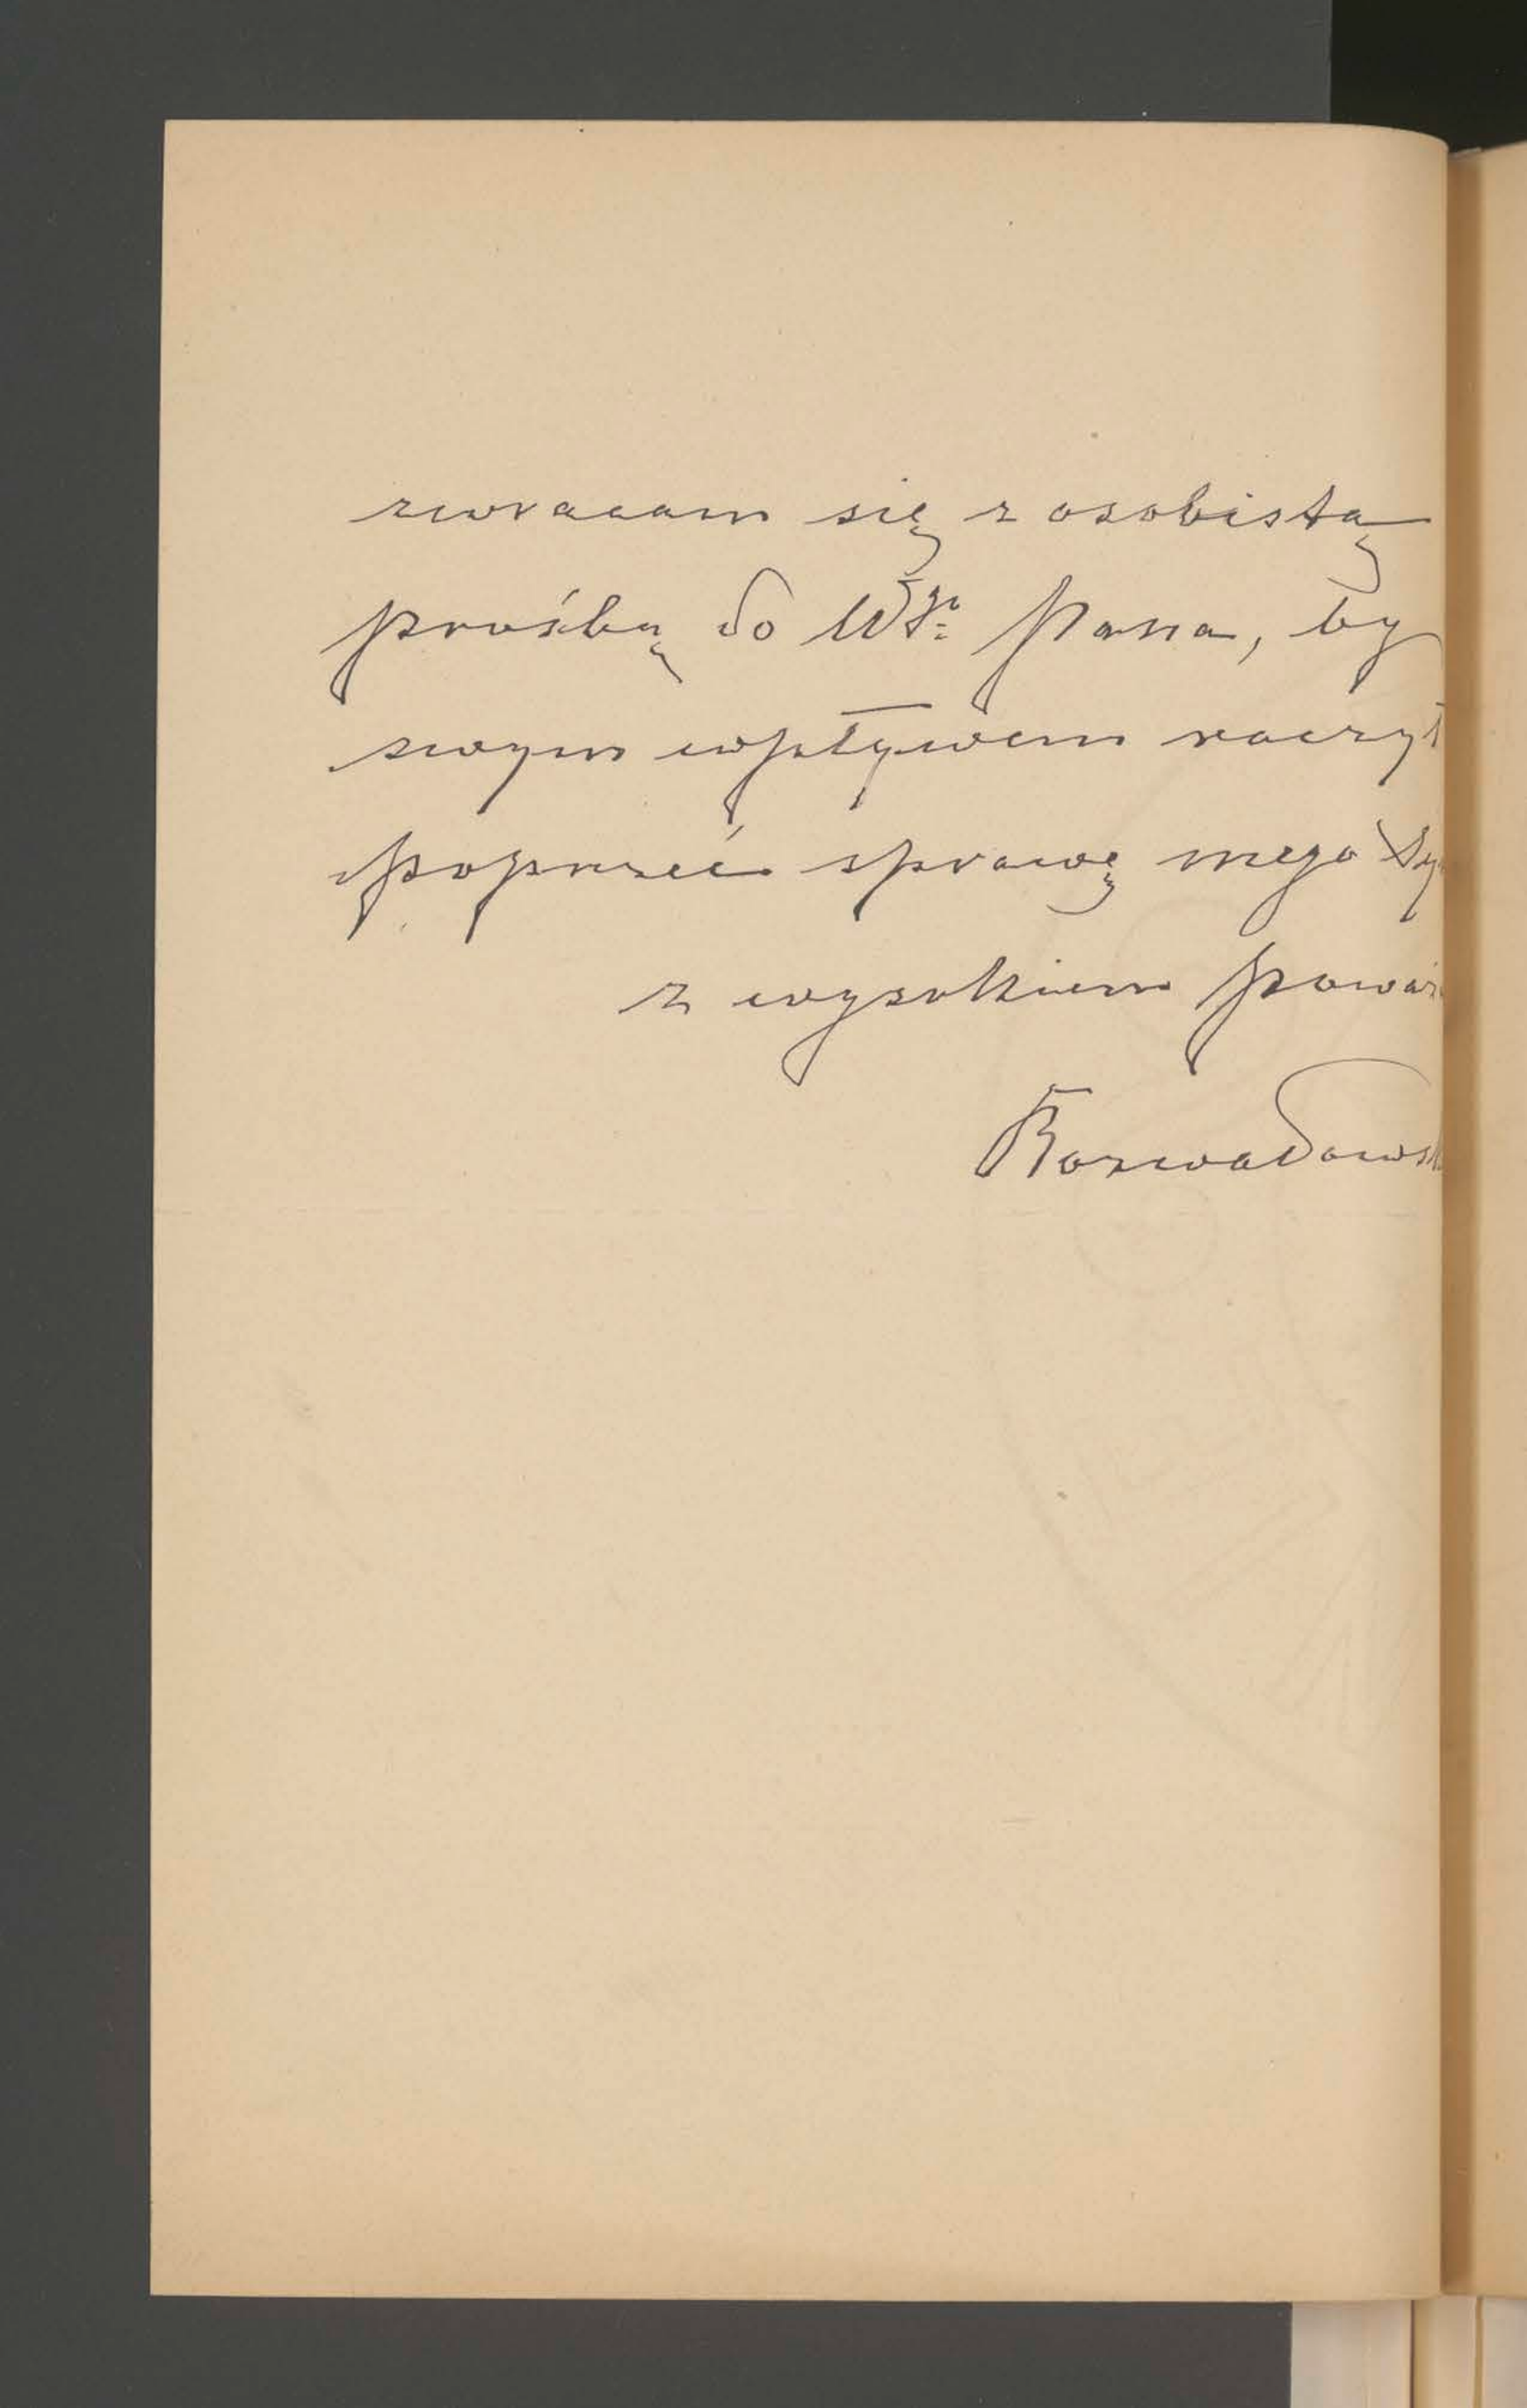 zwracam się z osobistą
prośbą do WP. Pana, by
swym wpływem raczył
poprzeć sprawę mego Sy
z wysokiem poważ
Rozwadowsk